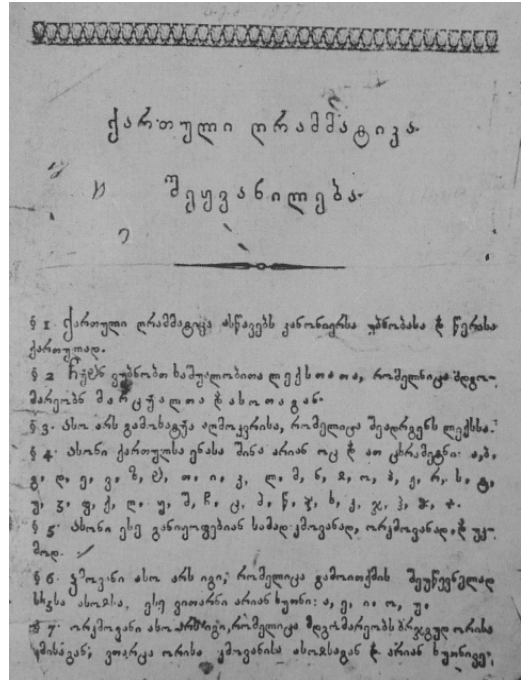 ქართული ღრამმატიკა.
შეყვანილება.
§ 1. ქართული ღრამმატიკა ასწავებს კანონიერსა უბნობასა და წერასა
ქართულად.
§ 2 ჩუენ ვუბნობთ საშუალობითა ლექსთათა, რომელნიცა შდგო-
მარეობნ მარცუალთა და ასოთაგან.
§ 3. ასო არს გამოხატჳა აღმოკურისა, რომელიცა შეადრგენს ლექსსა.
§ 4. ასონი ქართულსა ენასა შინა არიან ოც და ათ ცხრამეტნი: ა, ბ,
გ, დ, ე, ვ, ზ, ჱ, თ, ი, კ, ლ, მ, ნ, ჲ, ო, პ, ჟ, რ, ს, ტ,
უ, ჳ, ფ, ქ, ღ, ყ, შ, ჩ, ც, ძ, წ, ჭ, ხ, ჴ, ჯ, ჰ, ჵ,
§ 5. ასონი ესე განიყოფებიან სამად: ჴმოვანად, ორჴმოვანად, და უჴ-
მოდ.
§ 6. ჴმოვანი ასო არს იგი, რომელიცა გამოითქმის შეუწევნელად
სხჳსა ასოჲსა, ესე ვითარნი არიან ხუთნი: ა, ე, ი, ო, უ.
§ 7. ორჴმოვანი ასო არს იგი, რომელიცა მდგომარეობს ორისა
ჴმისაგან; ვითარცა ორისა ჴმოვანისა ასოჲსაგან და არიან ხუთნივე: